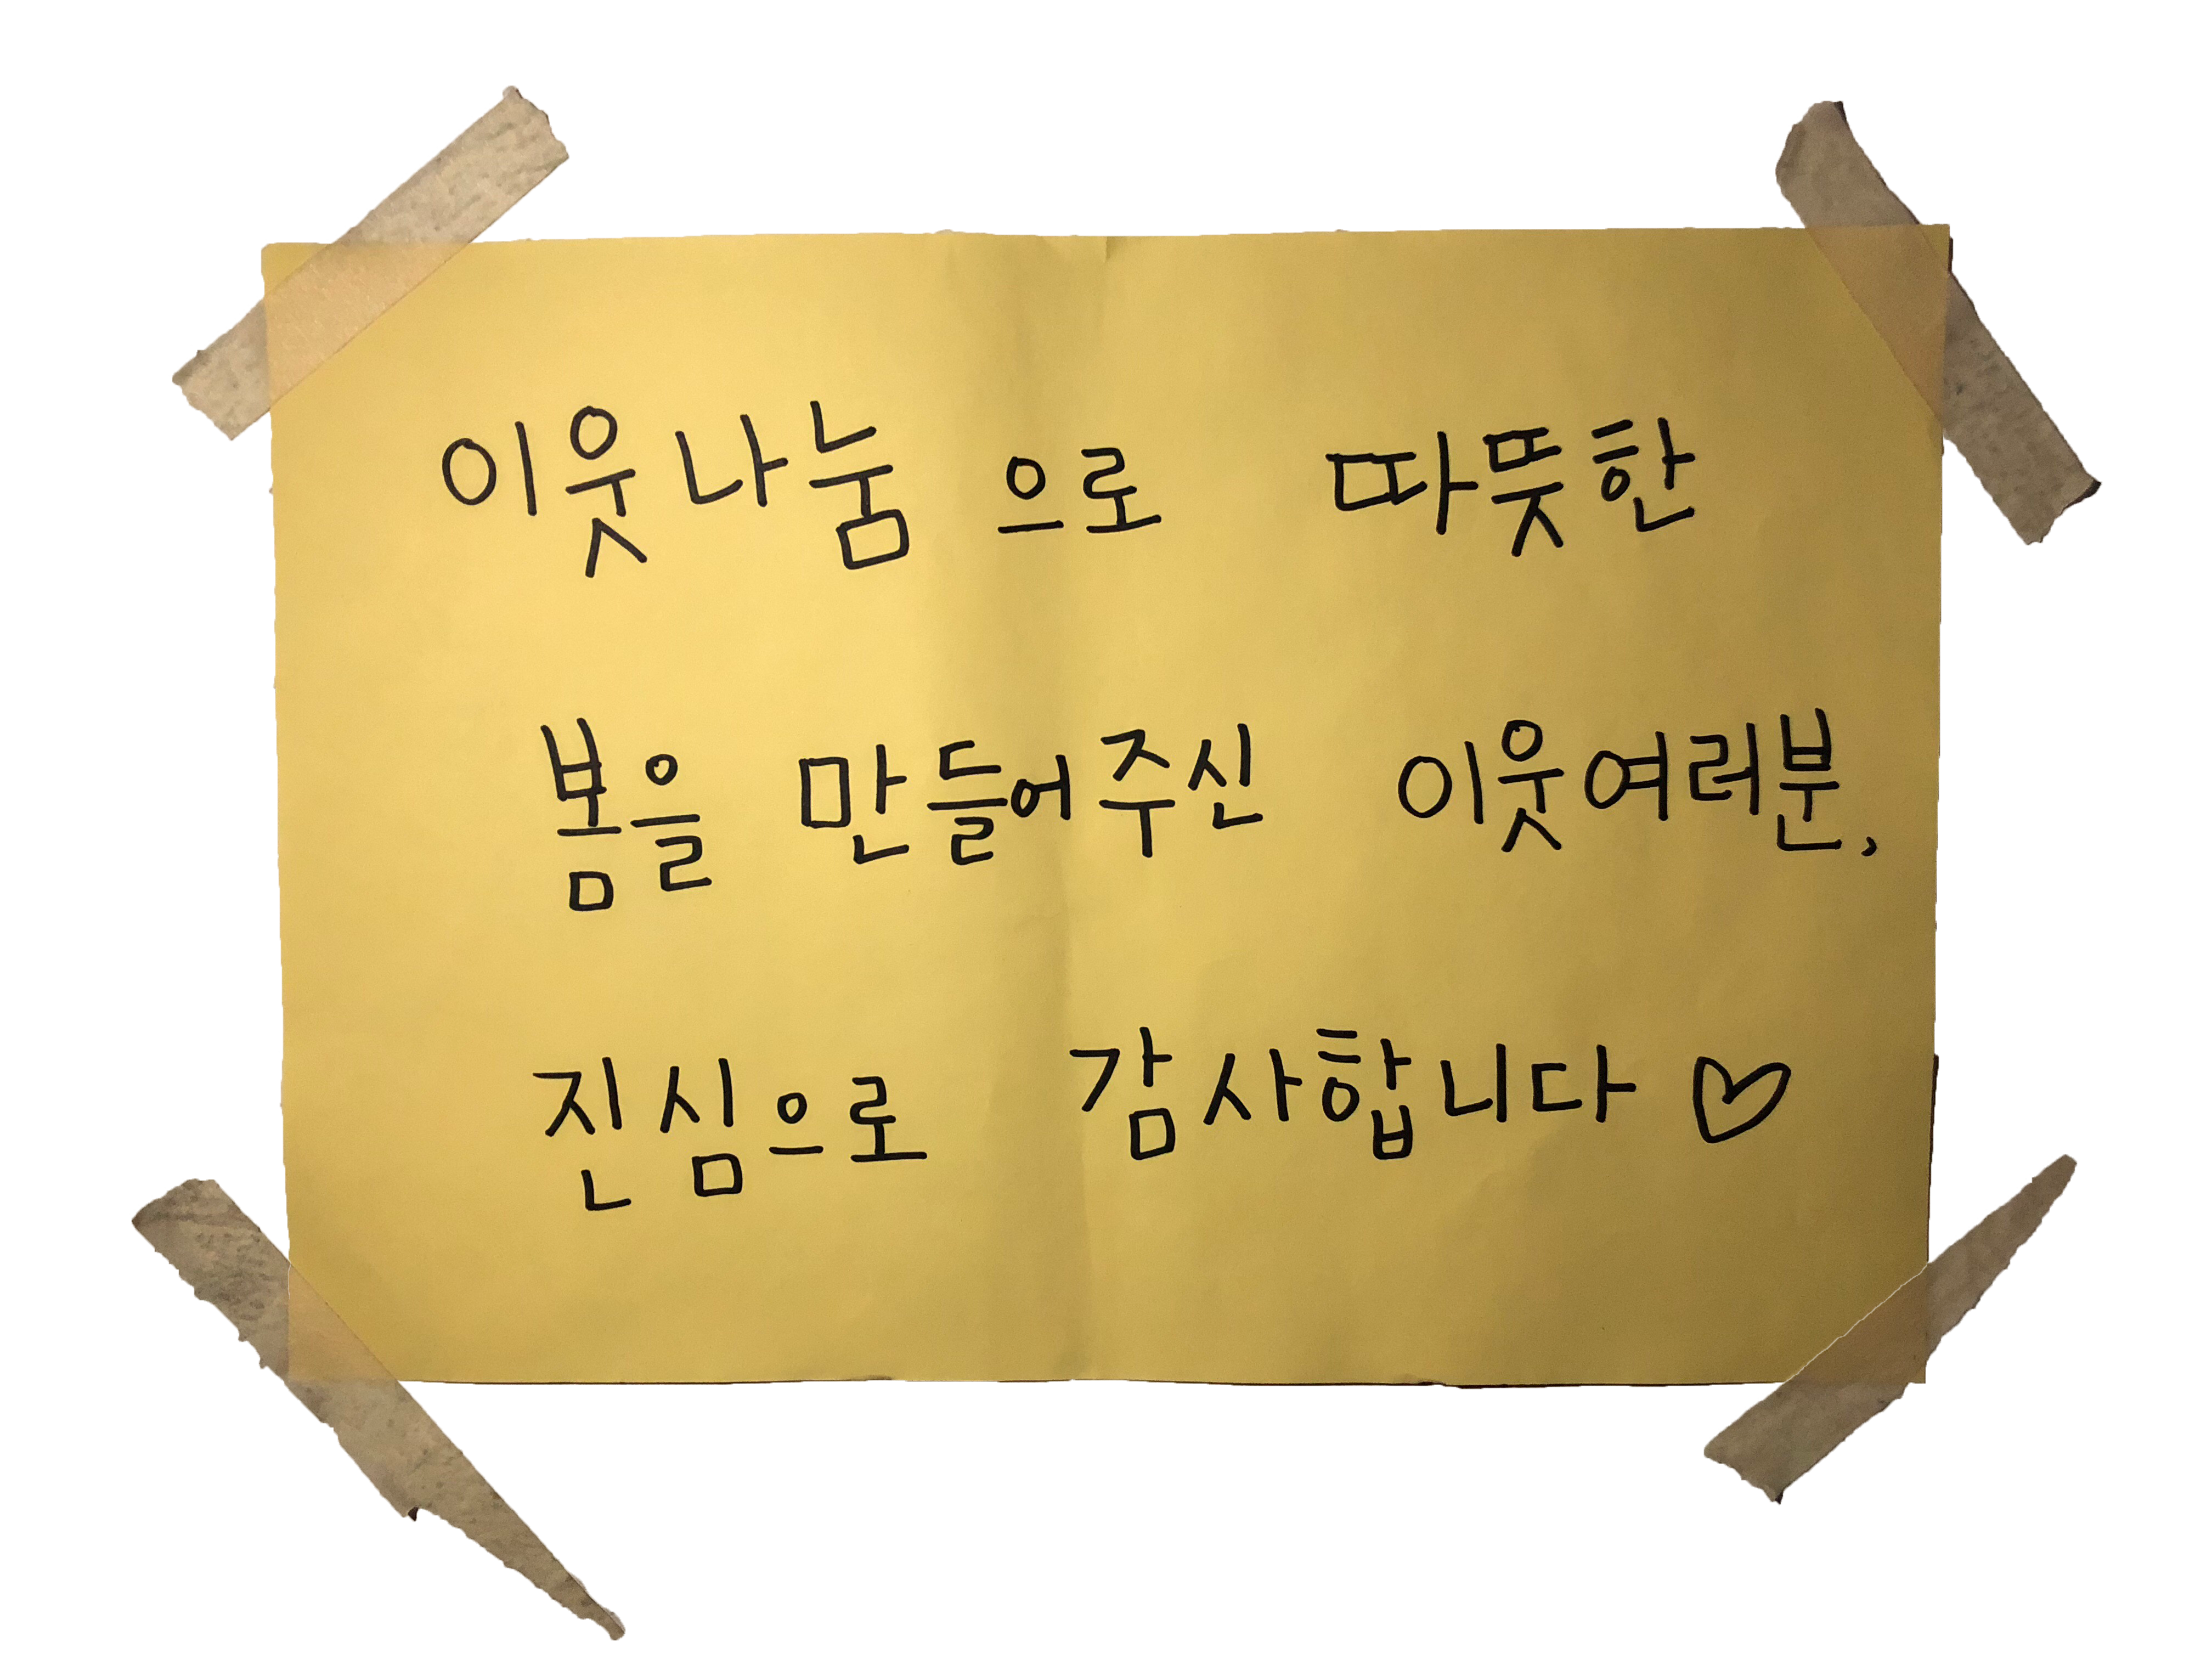 이웃나눔으로 따뜻한
봄을 만들어주신 이웃여러분,
진심으로 감사합니다 ♡